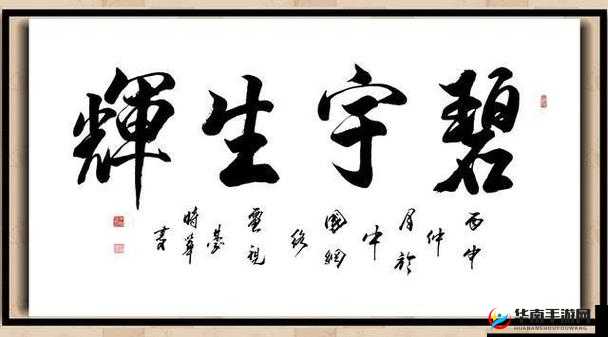 碧宇生輝
丙申
仲
月於
中
國網
絡
電視
臺
時華
書
华南手游网
HUANANSHOUYOUWANG